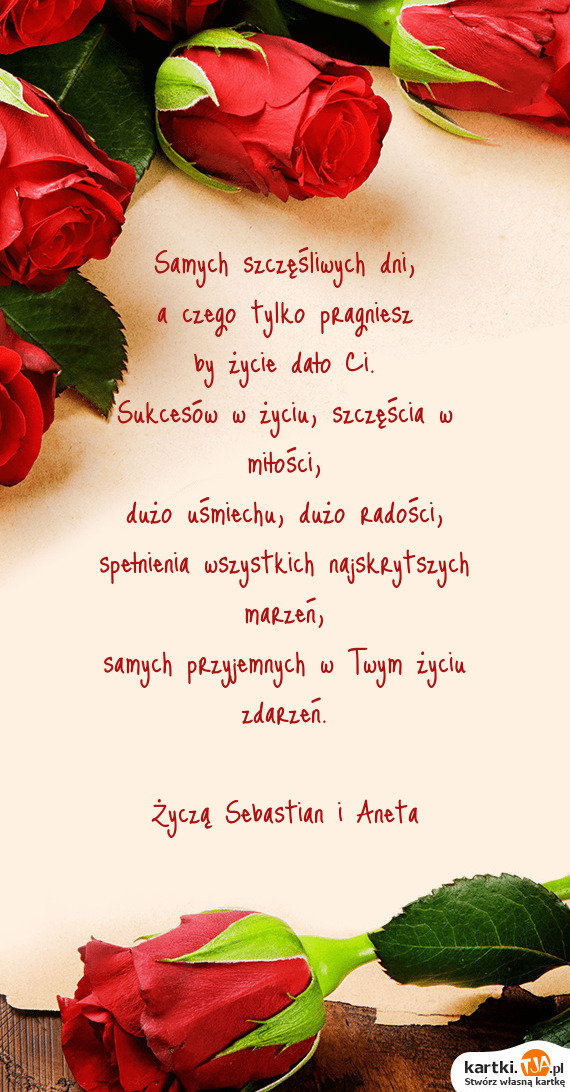 Samych szczęśliwych dni,
a czego tylko pragniesz
by życie dało Ci.
Sukcesów w życiu, szczęścia w
miłości,
dużo uśmiechu, dużo radości,
spełnienia wszystkich najskrytszych
marzeń,
samych przyjemnych w Twym życiu
zdarzeń.
Życzą Sebastian i Aneta
kartki.TJA.pl
Stwórz własną kartkę